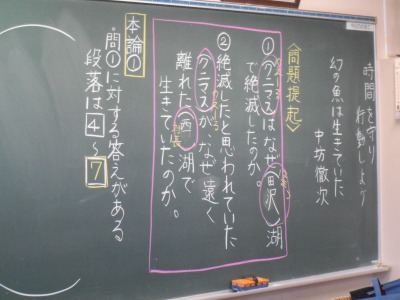 時間を守り
行動しよう
幻の魚は生きていた
中坊徹次
〈問題提起〉
①クニマスはなぜ田沢湖
で絶滅したのか。
②絶滅したと思われていた
クニマスがなぜ遠く
離れた西湖で
生きていたのか。
本論①
・問①に対する答えがある
段落は4〜7